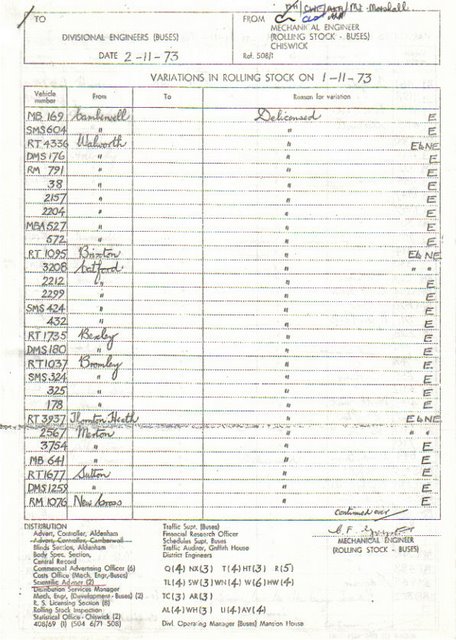 TO
DIVISIONAL ENGINEERS (BUSES)
DATE 2-11-73
Mr. Marshall
FROM
MECHANICAL ENGINEER
(ROLLING STOCK - BUSES)
CHISWICK
Ref. 508/1
VARIATIONS IN ROLLING STOCK ON 1-11-73
Vehicle number From To Reason for variation
MB 169 Camberwell Delicensed E
SMS 604 " " E
RT 4336 Walworth " E & NE
DMS 176 " " E
RM 791 " " E
38 " " E
2157 " " E
2204 " " E
MBA 527 " " E
572 " " E
RT 1095 Brixton " E & NE
3208 Catford " " "
2212 " " E
2299 " " E
SMS 424 " " E
432 " " E
RT 1735 Bexley " E
DMS 180 " " E
RT 1037 Bromley " E
SMS 324 " " E
325 " " E
178 " " E
RT 3937 Thornton Heath " E & NE
2567 Merton " " "
3754 " " E
MB 641 " " E
RT 1677 Sutton " E
DMS 1259 " " E
RM 1076 New Cross " E
continued over
MECHANICAL ENGINEER
(ROLLING STOCK - BUSES)
DISTRIBUTION
Advert. Controller, Aldenham
Advert. Controller, Camberwell
Blinds Section, Aldenham
Body Spec. Section,
Central Record
Commercial Advertising Officer (6)
Costs Office (Mech. Engr.-Buses)
Scientific Adviser (2)
Distribution Services Manager
Mech. Engr. (Development - Buses) (2)
R. S. Licensing Section (8)
Rolling Stock Inspection
Statistical Office - Chiswick (2)
408/69 (1) (504 6/71 508)
Traffic Supt. (Buses)
Financial Research Officer
Schedules Supt. Buses
Traffic Auditor, Griffith House
District Engineers
Q(4) NX(3) T(4) HT(3) R(5)
TL(4) SW(3) WN(4) W(6) HW(4)
TC(3) AR(3)
AL(4) WH(3) LI(4) AV(4)
Divl. Operating Manager (Buses) Mansion House